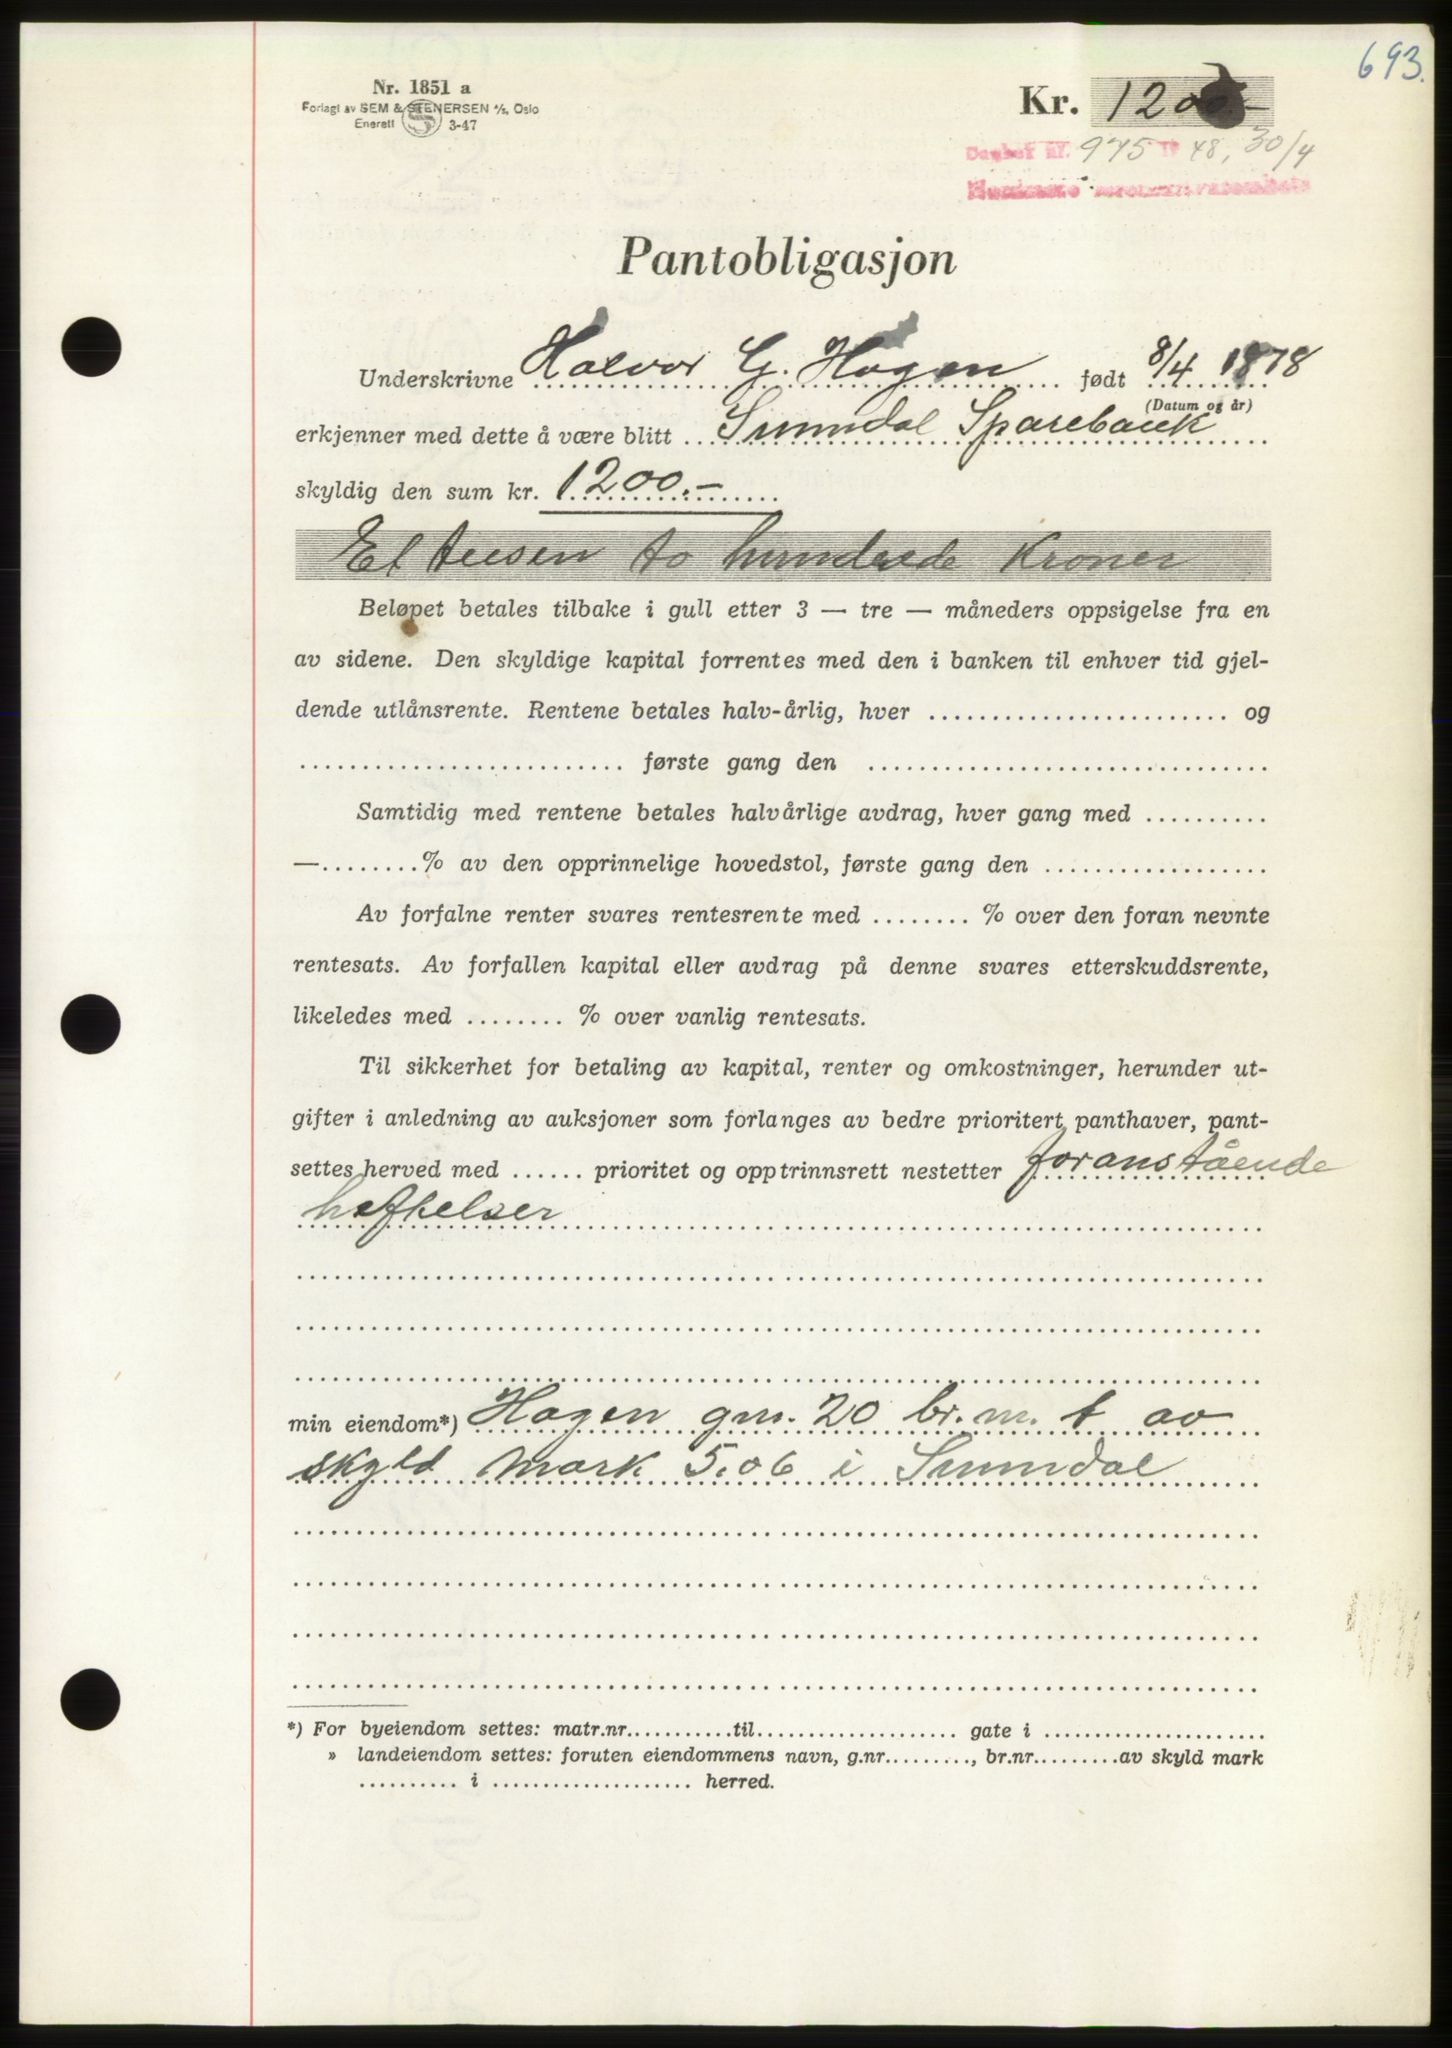 693.
Nr. 1851 a
Forlagt av SEM & STENERSEN A/S, Oslo
Enerett S 3-47
Kr. 1200.-
Dagbok nr. 975 19 48, 30/4
Pantobligasjon
Underskrivne Halvor G. Hagen født 8/4 1878
(Datum og år)
erkjenner med dette å være blitt Sunndal Sparebank
skyldig den sum kr. 1200.-
Et tusen to hundrede Kroner
Beløpet betales tilbake i gull etter 3 — tre — måneders oppsigelse fra en
av sidene. Den skyldige kapital forrentes med den i banken til enhver tid gjel-
dende utlånsrente. Rentene betales halv-årlig, hver ........................ og
.......................... første gang den ................................
Samtidig med rentene betales halvårlige avdrag, hver gang med ..........
—........% av den opprinnelige hovedstol, første gang den ..................
Av forfalne renter svares rentesrente med ........ % over den foran nevnte
rentesats. Av forfallen kapital eller avdrag på denne svares etterskuddsrente,
likeledes med ........ % over vanlig rentesats.
Til sikkerhet for betaling av kapital, renter og omkostninger, herunder ut-
gifter i anledning av auksjoner som forlanges av bedre prioritert panthaver, pant-
settes herved med ...... prioritet og opptrinnsrett nestetter foranstående
heftelser
min eiendom*) Hagen gnr. 20 br. nr. 1 av
skyld mark 5.06 i Sunndal
*) For byeiendom settes: matr.nr...........til.................... gate i ......................
» landeiendom settes: foruten eiendommens navn, g.nr........., br.nr.........av skyld mark
.......... i .................... herred.